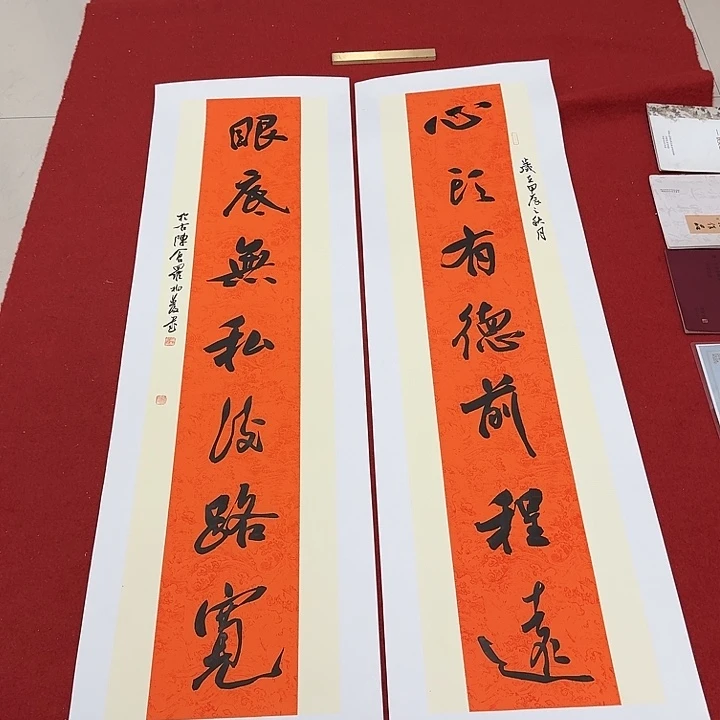 心頭有德前程遠
歲在甲辰之秋月
眼底無私後路寬
於古陳倉羅書